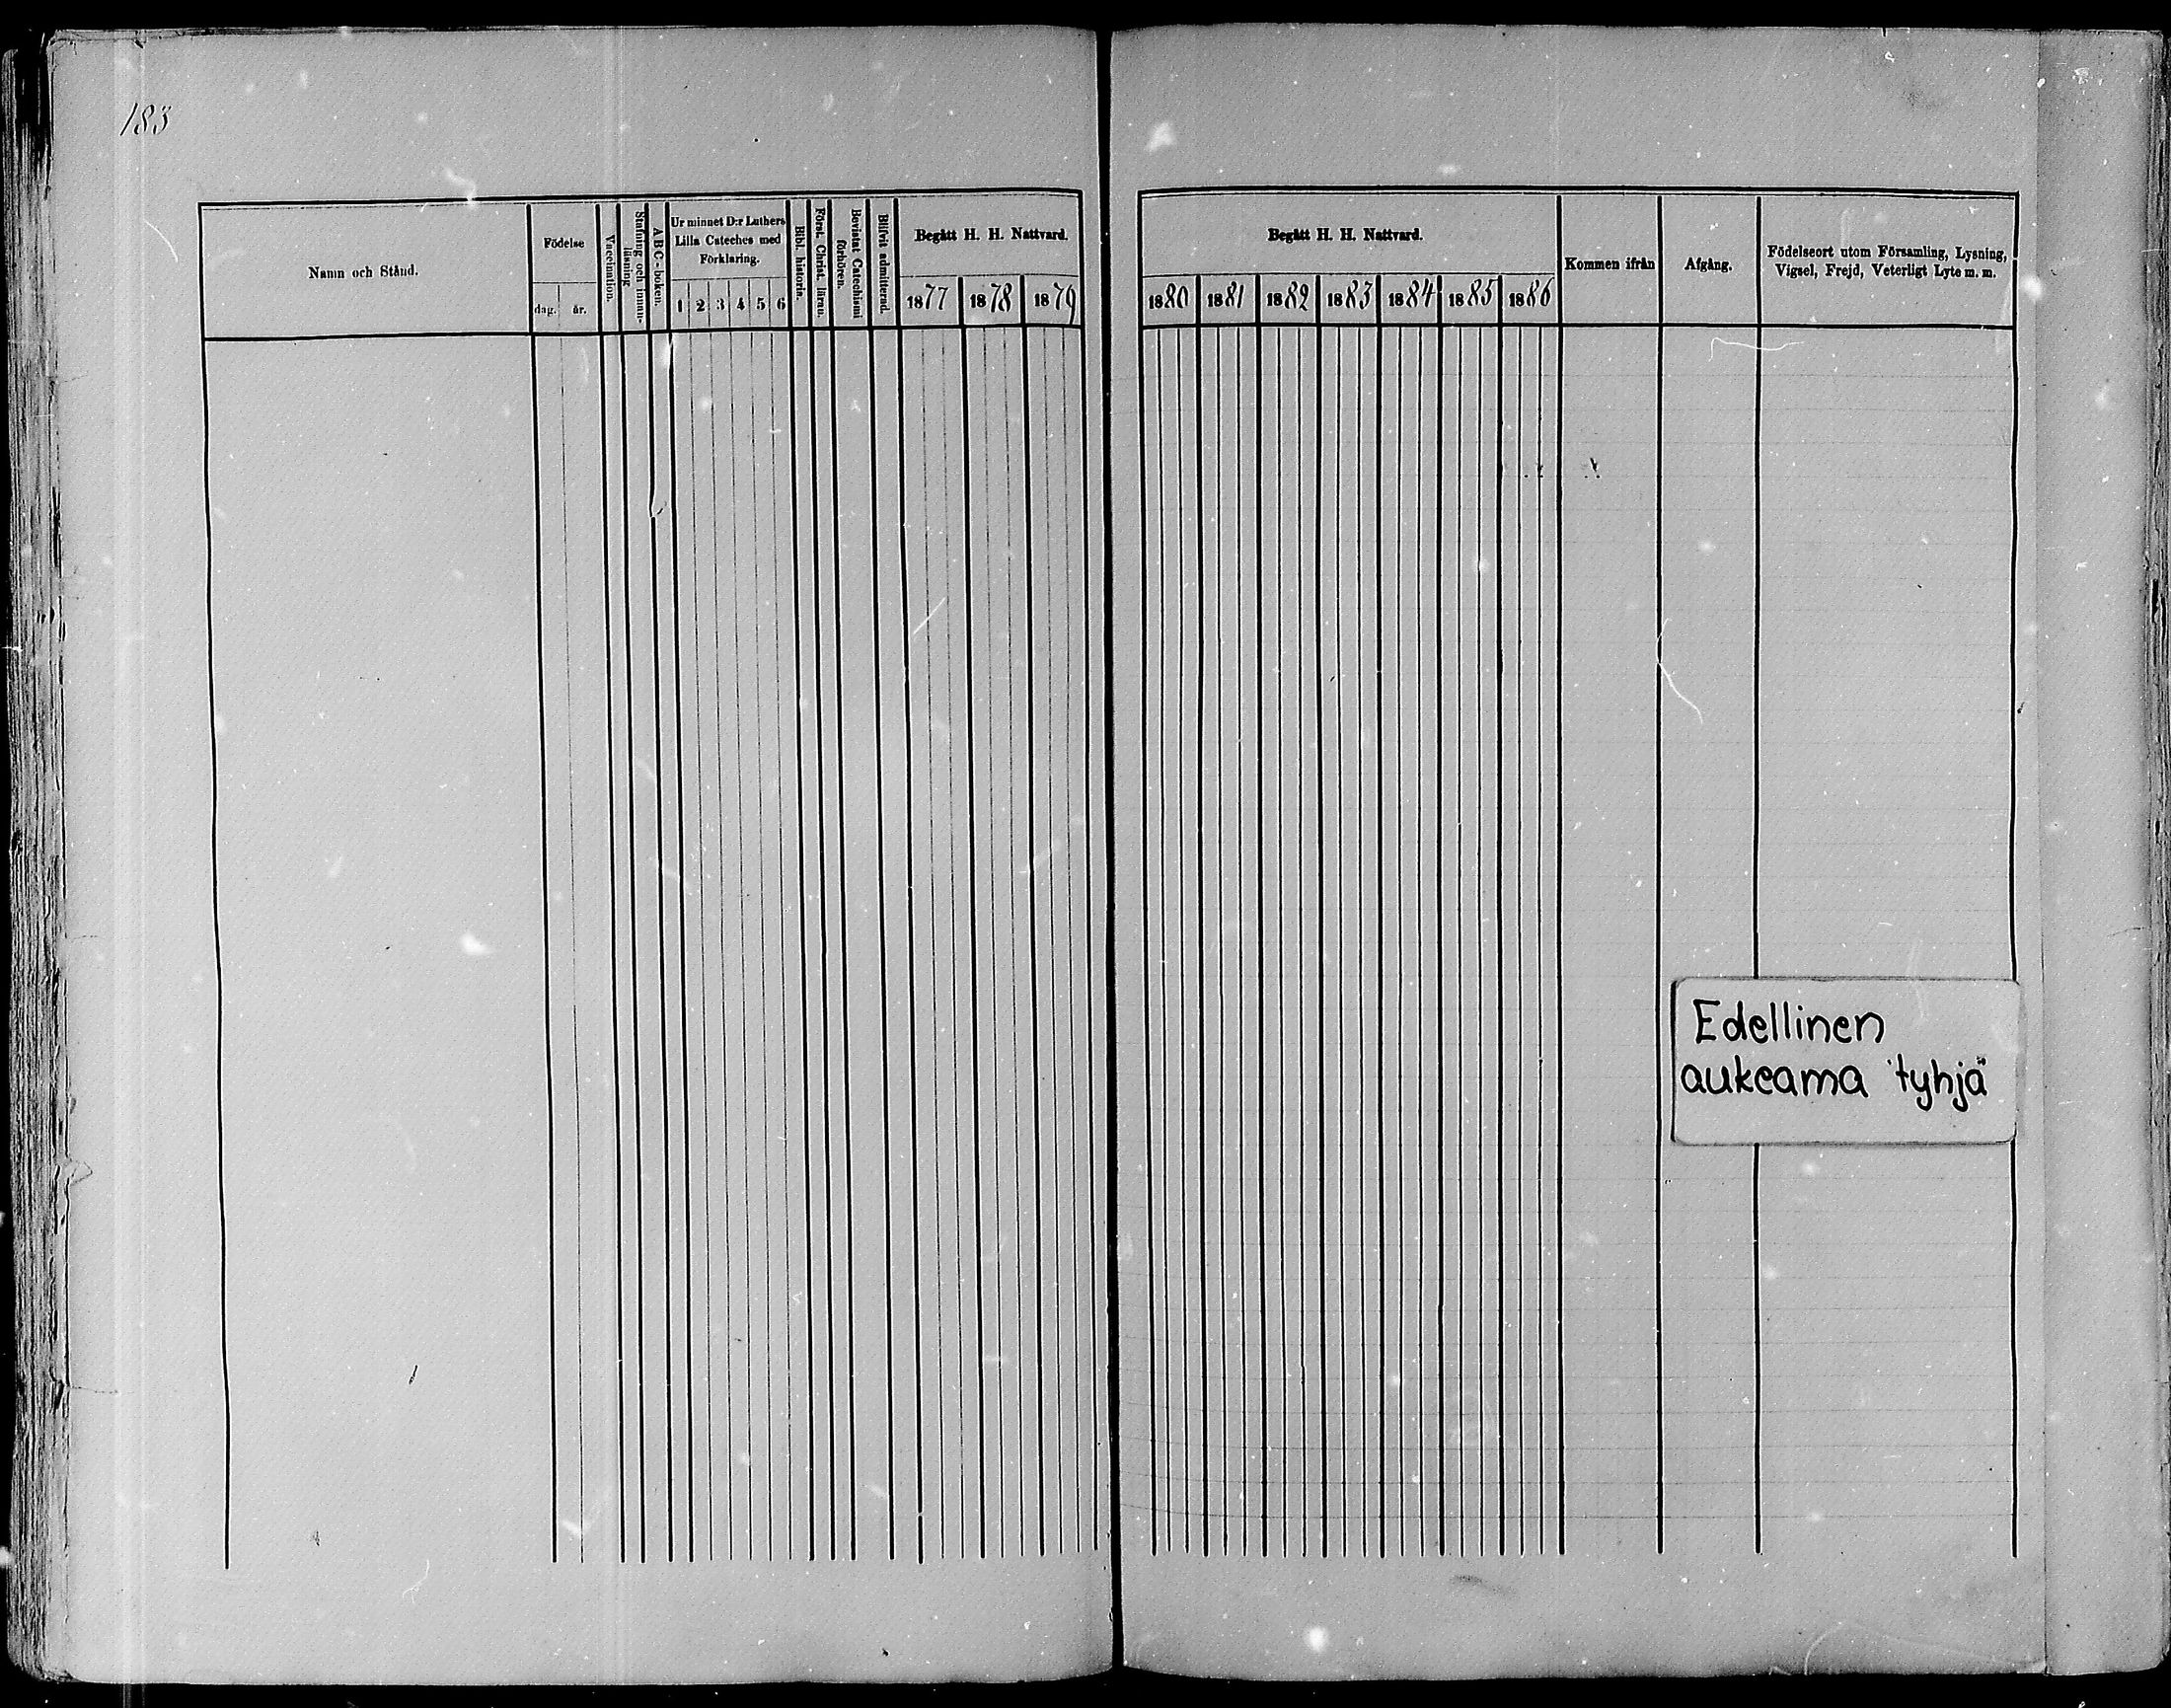 183
Namn och Stånd.
Födelse
dag. år.
Vaccination.
Stafning och innan-
läsning
A B C-boken.
Ur minnet D:r Luthers
Lilla Cateches med
Förklaring.
1 2 3 4 5 6
Bibl. historia.
Först. Christ. läran.
Bevistat Catechismi
förhören.
Blifvit admitterad.
Begått H. H. Nattvard.
1877 1878 1879
Begått H. H. Nattvard.
1880 1881 1882 1883 1884 1885 1886
Kommen ifrån
Afgång.
Födelseort utom Församling, Lysning,
Vigsel, Frejd, Veterligt Lyte m. m.
Edellinen
aukeama tyhjä